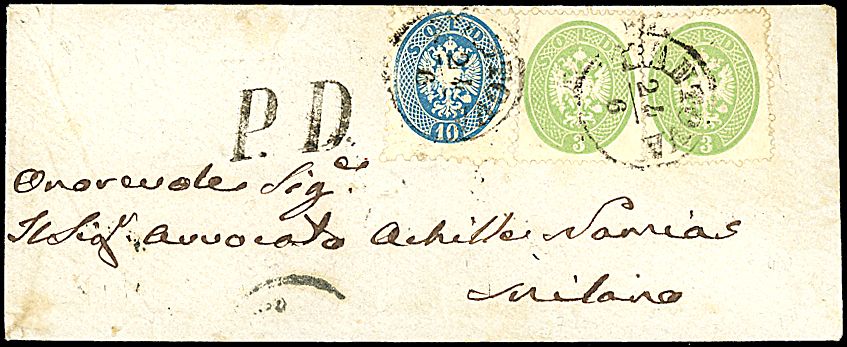 SOLDI 10
SOLDI 3
SOLDI 3
MANTOVA
24
6
P.D.
Onorevole Sig.e
Il Sigr. Avvocato Achille Namias
Milano